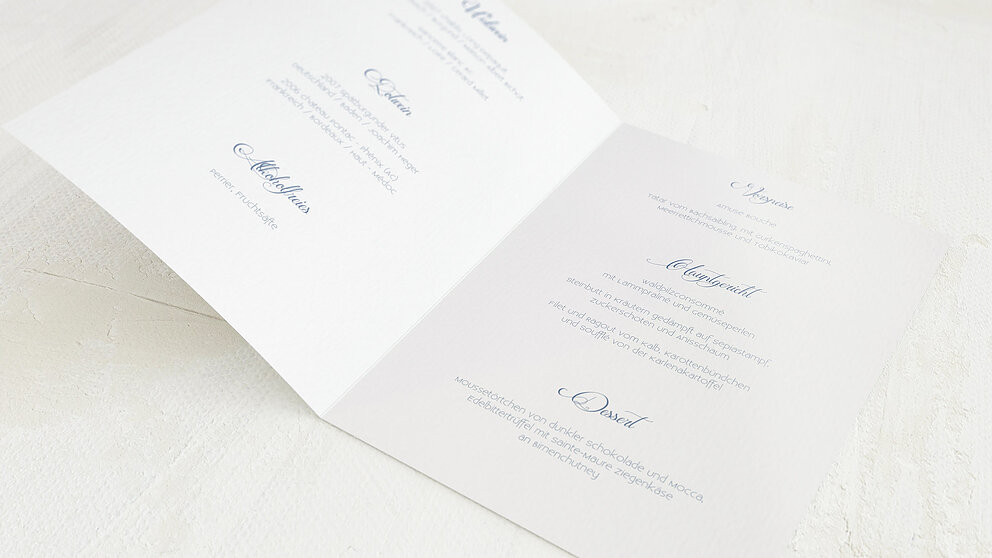 Weißwein
Rotwein
2007 Spätburgunder Vitus
Deutschland / Baden / Joachim Heger
2006 Chateau Pontac - Phénix (AC)
Frankreich / Bordeaux / Haut - Médoc
Alkoholfreies
Perrier, Fruchtsäfte
Vorspeise
Amuse Bouche
Tatar vom Bachsaibling, mit Gurkenspaghettini,
Meerrettichmousse und Tobikokaviar
Hauptgericht
Waldpilzconsommé
mit Lammpraliné und Gemüseperlen
Steinbutt in Kräutern gedämpft auf Sepiastampf,
Zuckerschoten und Anisschaum
Filet und Ragout vom Kalb, Karottenbündchen
und Soufflé von der Karlenakartoffel
Dessert
Moussetörtchen von dunkler Schokolade und Mocca,
Edelbittertrüffel mit Sainte-Maure Ziegenkäse
an Birnenchutney